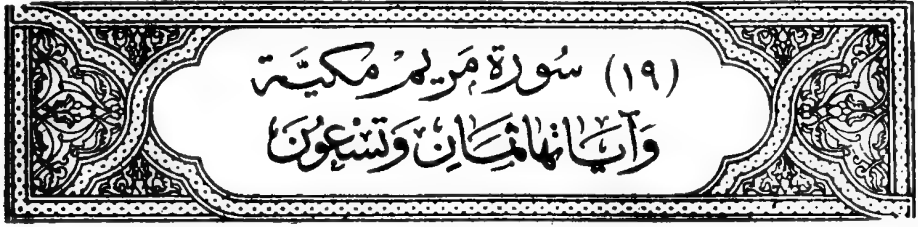 (١٩) سُورَة مَريَم مَكيَّة
وَآيَاتهَا ثمَانِ وَتسْعُونَ